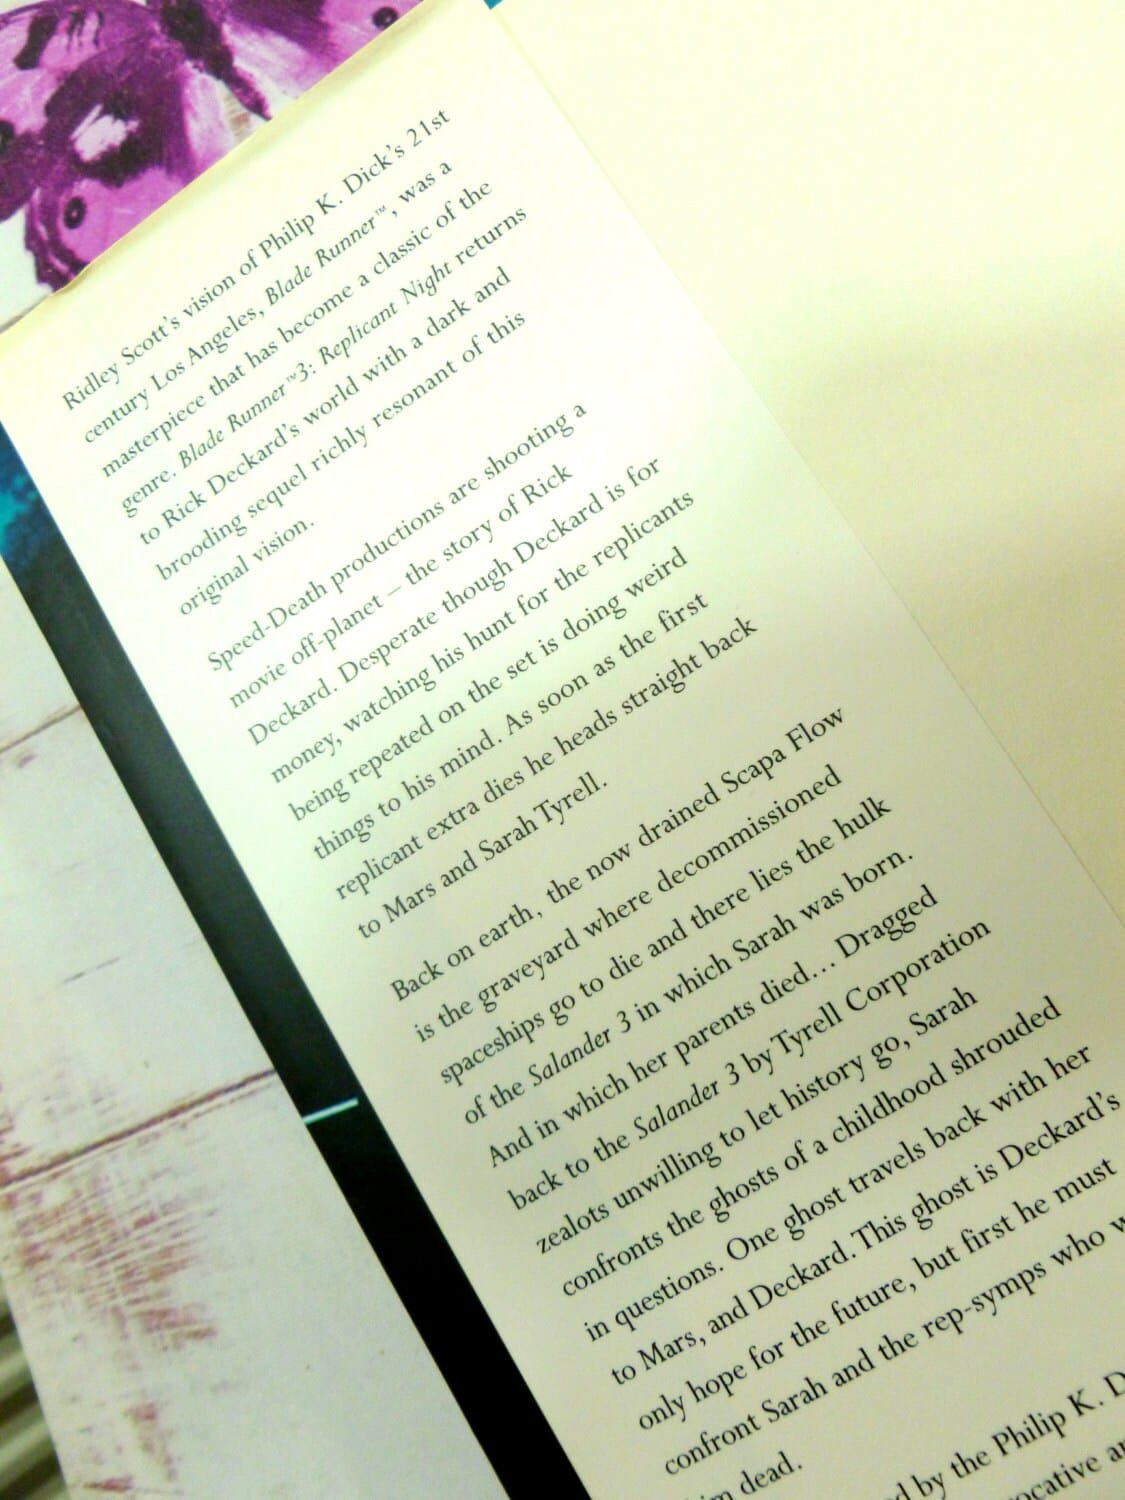 Ridley Scott's vision of Philip K. Dick's 21st
century Los Angeles, Blade Runner™, was a
masterpiece that has become a classic of the
genre. Blade Runner™3: Replicant Night returns
to Rick Deckard's world with a dark and
brooding sequel richly resonant of this
original vision.
Speed-Death productions are shooting a
movie off-planet – the story of Rick
Deckard. Desperate though Deckard is for
money, watching his hunt for the replicants
being repeated on the set is doing weird
things to his mind. As soon as the first
replicant extra dies he heads straight back
to Mars and Sarah Tyrell.
Back on earth, the now drained Scapa Flow
is the graveyard where decommissioned
spaceships go to die and there lies the hulk
of the Salander 3 in which Sarah was born.
And in which her parents died... Dragged
back to the Salander 3 by Tyrell Corporation
zealots unwilling to let history go, Sarah
confronts the ghosts of a childhood shrouded
in questions. One ghost travels back with her
to Mars, and Deckard. This ghost is Deckard's
only hope for the future, but first he must
confront Sarah and the rep-symps who
dead.
by the Philip K.